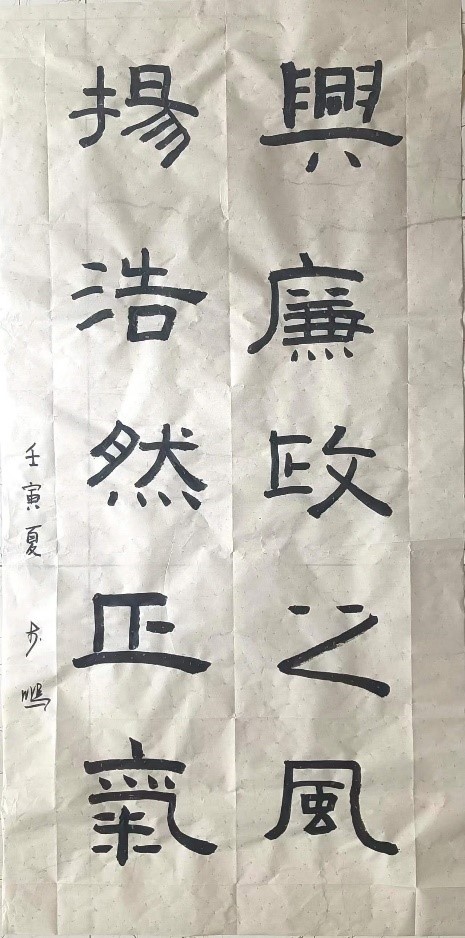 興廉政之風
揚浩然正氣
壬寅夏 步鵬